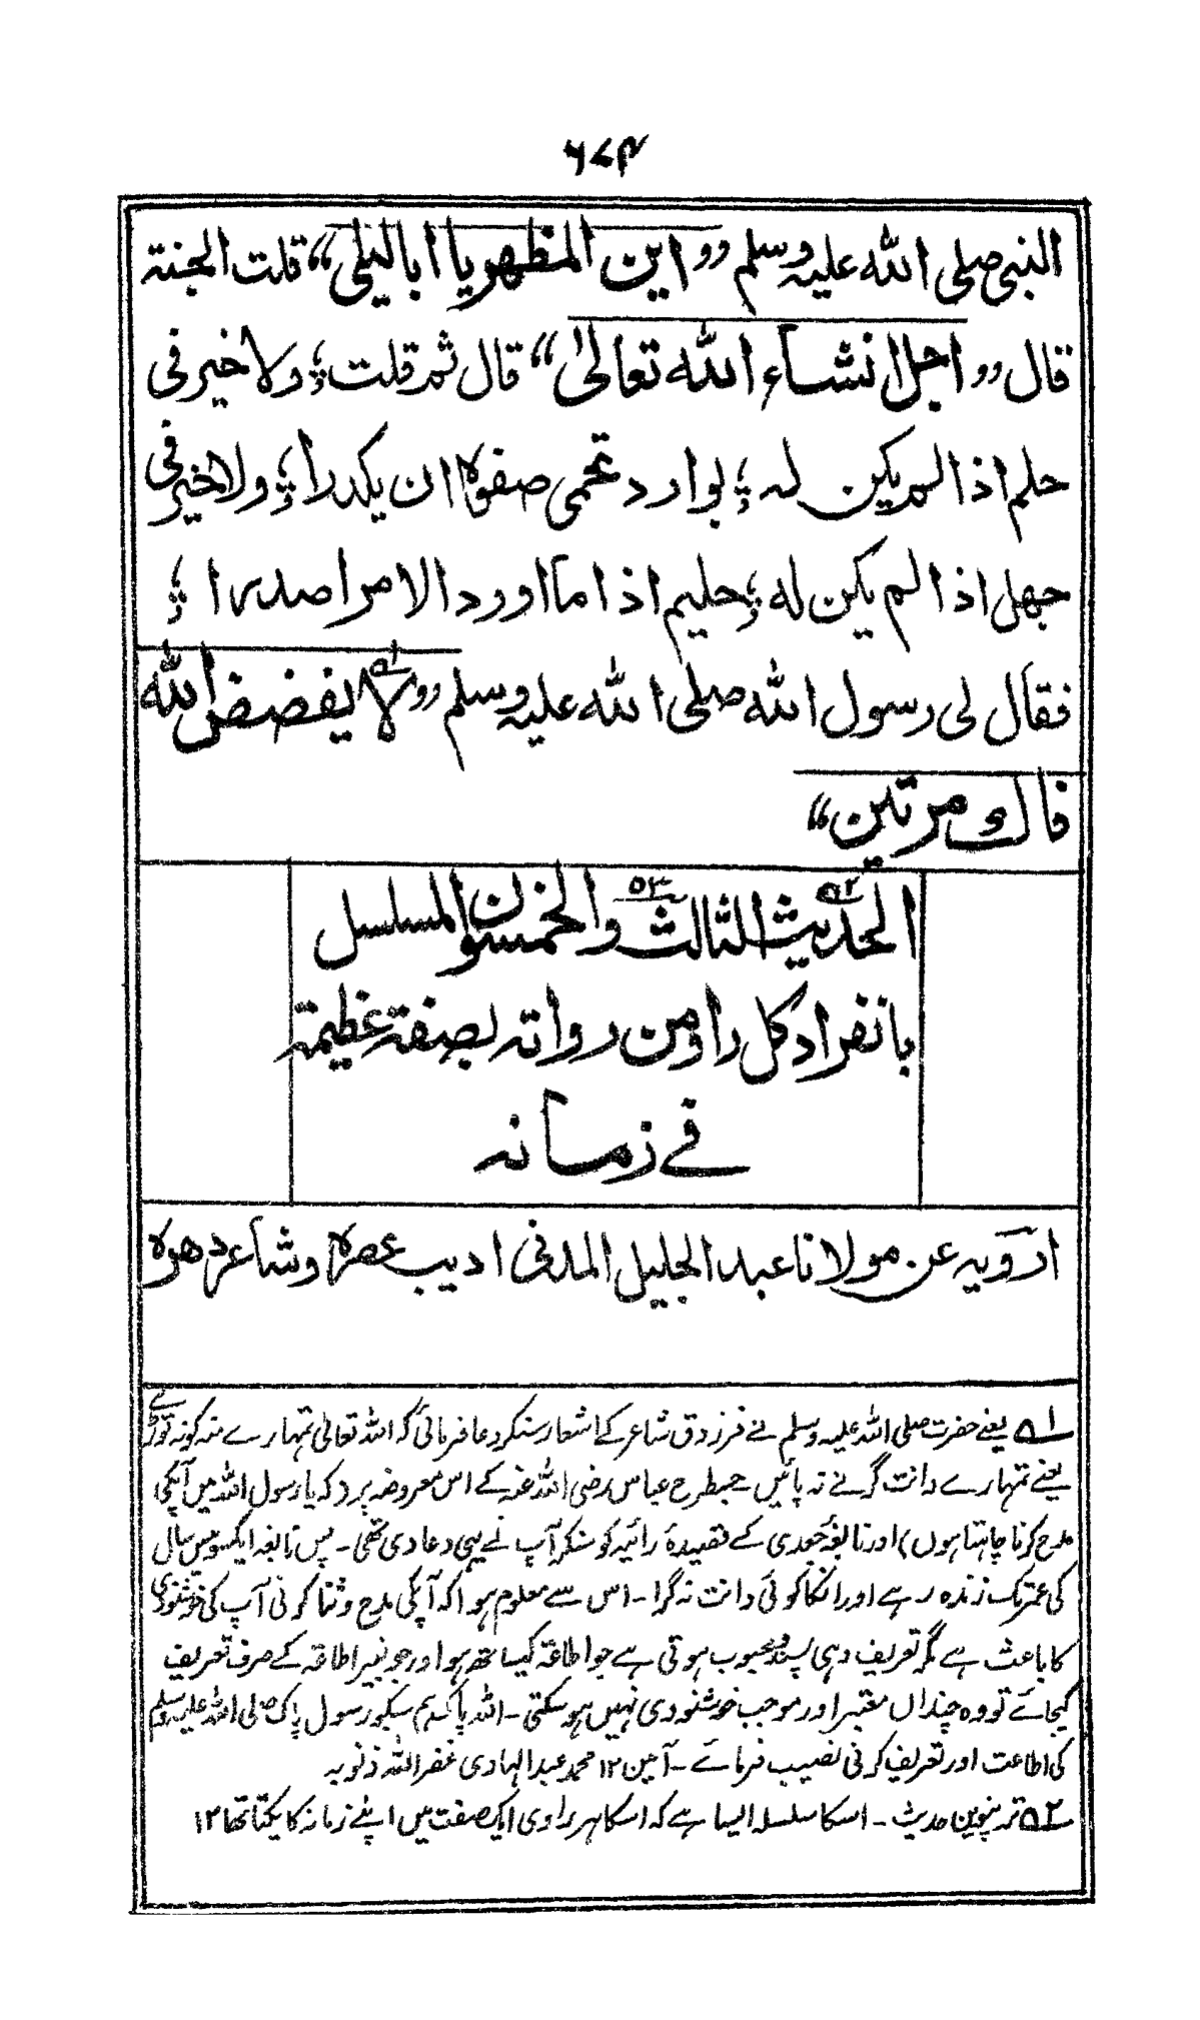 ۶۷۴
النبی صلی اللہ علیہ وسلم ”این المظهر یا ابالیلی“ قلت الجنة
قال ”اجل انشاء اللہ تعالیٰ“ قال ثم قلت ؛ ولا خیر فی
حلم اذا لم یکن لہ ؛ بوادر تحمی صفوہ ان یکدرا ؛ ولا خیر فی
جهل اذا لم یکن له ؛ حلیم اذا ما اورد الامر اصدرا ؛
فقال لی رسول اللہ صلی اللہ علیہ وسلم ”لا۱ یفضض اللہ
فاك مرتین“
الحدیث۲ الثالث ۵۳ والخمسون المسلسل
بانفراد کل راو من رواتہ بصفة عظیمة
فے زمانہ
ارویہ عن مولانا عبد الجلیل المدنی ادیب عصرہ وشاعر دهرہ
۱ یعنے حضرت صلی اللہ علیہ وسلم نے فرزدق شاعر کے اشعار سنکر دعا فرمائی کہ اللہ تعالیٰ تمہارے منہ کو نہ توڑے
یعنے تمہارے دانت گرنے نہ پائیں جسطرح عباس رضی اللہ عنہ کے اس معروضہ پر (کہ یا رسول اللہ میں آپکی
مدح کرنا چاہتا ہوں) اور نابغۂ جعدی کے قصیدۂ رائیہ کو سنکر آپ نے یہی دعا دی تھی ۔ پس نابغہ ایکسو بیس سال
کی عمر تک زندہ رہے اور انکا کوئی دانت نہ گرا ۔ اس سے معلوم ہوا کہ آپکی مدح وثنا کرنی آپ کی خوشنودی
کا باعث ہے مگر تعریف وہی پسند و محبوب ہوتی ہے جو اطاقہ کیساتھ ہو اور جو بغیر اطاقہ کے صرف تعریف
کیجائے تو وہ چنداں معتبر اور موجب خوشنودی نہیں ہو سکتی ۔ اللہ پاک ہم سبکو رسول پاک صلی اللہ علیہ وسلم
کی اطاعت اور تعریف کرنی نصیب فرمائے ۔ آمین ۱۲ محمد عبد الہادی غفر اللہ ذنوبہ
۲ ترپنویں حدیث ۔ اسکا سلسلہ ایسا ہے کہ اسکا ہر راوی ایک صفت میں اپنے زمانہ کا یکتا تھا ۱۲